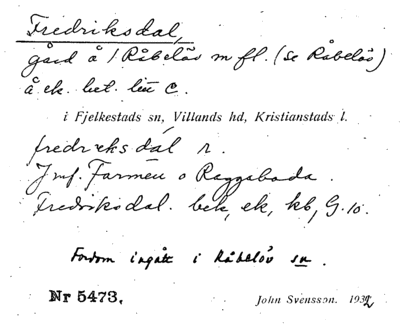 Fredriksdal,
gård å 1 Råbelöv m fl. (se Råbelöv)
å ek. bet. litt C.
i Fjelkestads sn, Villands hd, Kristianstads l.
fredreksdál n.
Jmf. Farmen o Raggabada.
Fredriksdal. bek, ek, kb, G. 10.
Fordom ingått i Råbelöv sn.
Nr 5473.
John Svensson. 1932